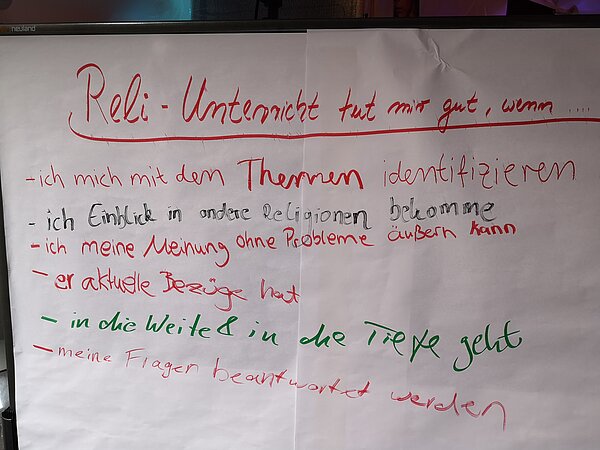 neuland
Reli-Unterricht tut mir gut, wenn ....
- ich mich mit den Themen identifizieren
- ich Einblick in andere Religionen bekomme
- ich meine Meinung ohne Probleme äußern kann
- er aktuelle Bezüge hat
- in die Weite & in die Tiefe geht
- meine Fragen beantwortet werden